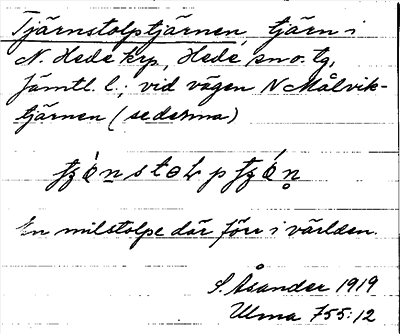 Tjärnstolptjärnen, tjärn i
N. Hede krp, Hede sn o. tg,
Jämtl. l.; vid vägen N Målvik-
tjärnen (se denna)
En milstolpe där förr i världen.
S. Åsander 1919
Ulma 755:12